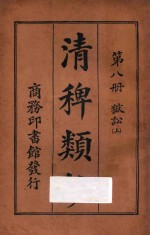 第八冊 獄訟(上)
清稗類
商務印書館發行